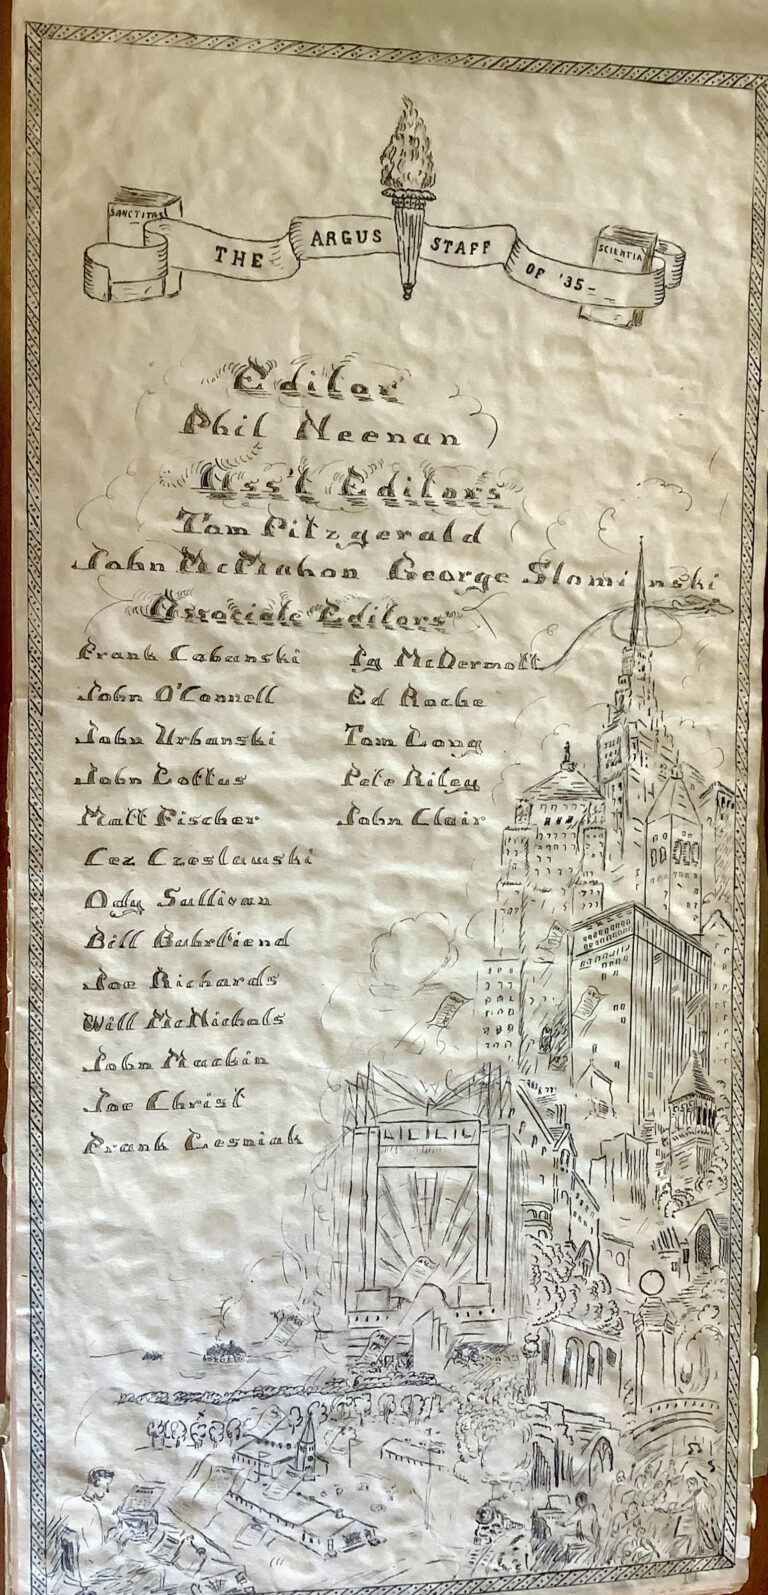 SANCTITAS
THE ARGUS STAFF OF '35-
SCIENTIA
Editor
Phil Neenan
Ass't Editors
Tom Fitzgerald
John McMahon George Slominski
Associate Editors
Frank Cabanski
John O'Connell
John Urbanski
John Loftus
Matt Fischer
Cez Czeslawski
Ogy Sullivan
Bill
Joe Richards
Will McNichols
John Mackin
Joe Christ
Frank Lesniak
Ig McDermott
Ed Roche
Tom Long
Pete Riley
John Clair